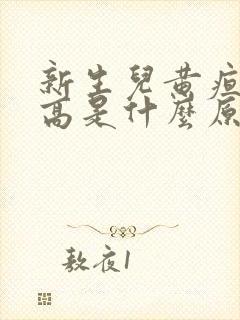 新生兒黄疸
高是什麽原
敖夜1